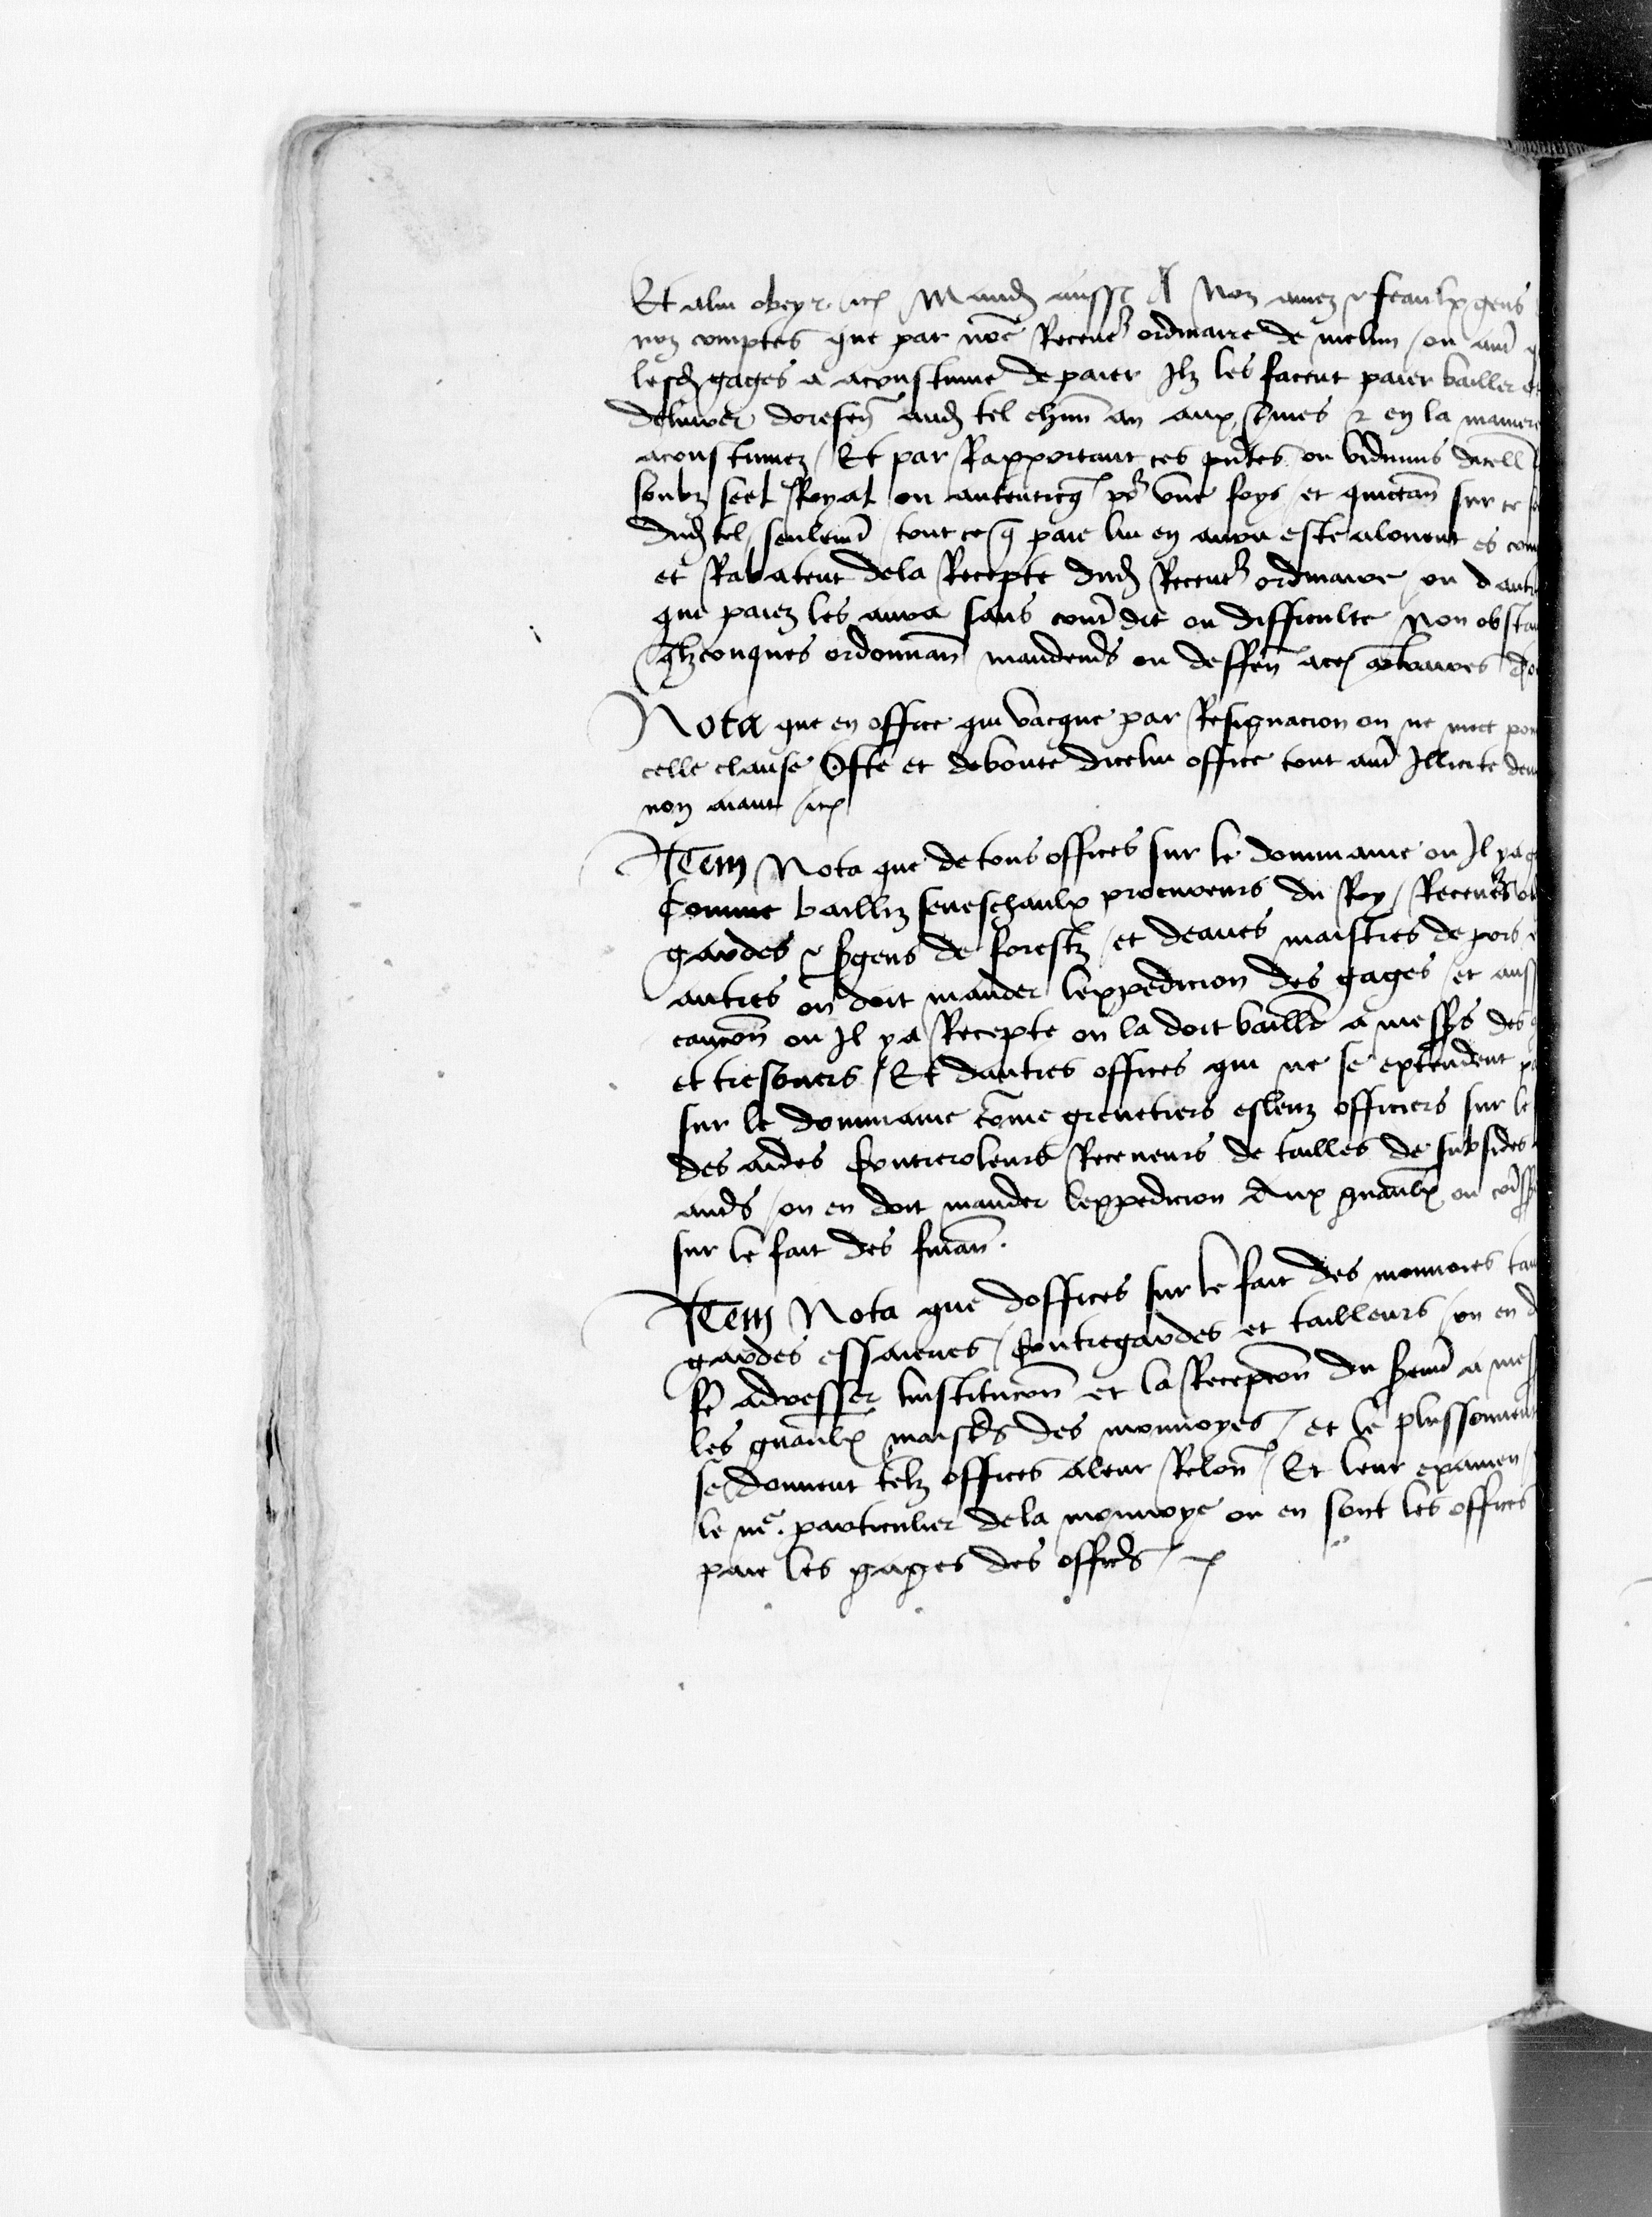 Et a luy obeyr etc Mand aussi A Noz amez & feaulx gens
noz comptes que par nre Receueur ordinaire de melun / ou aut
lesd gages a acoustume de paier Ilz les facent paier bailler et
deliurer doresen aud tel chun an aux tmes & en la maniere
acoustumez / Et par Rapportant ces pntes ou vidimus dicell
soubz seel Royal ou autenticq por vne foys / et quictan sur ce
dud tel seulemt / tout ce q paie lui en aura este alouent es com
et Rabatent dela Recepte dud Receueur ordinaire / ou dautr
que paiez les aura sans contdit ou difficulte Non obstan
qlzconques ordonnan mandemens ou deffen a ce contraires
Nota que en office qui vacque par Resignacion on ne mect poi
celle clause Oste et deboute dicelui office tout aut Illicite den
non aiant etc
Item Nota que de tous offices sur le dommaine ou Il y a
Comme bailliz seneschaulx procureurs du Roy / Receueurs or
gardes & sgens de forestz / et deaues maistres de pors
autres on doit mander lexpedicion des gages / et aus
caucon ou Il y a Recepte on la doit bailler a mess des
et tresoriers / Et dautres offices qui ne se extendent
sur le dommaine come grenetiers esleuz officiers sur le
des aides Controleurs Receueurs de tailles de subsides
auds / on en doit mander lexpedicion Aux gnaulx ou comss
sur le fait des finan.
Item Nota que doffices sur le fait des monnoies tan
gardes essaieurs / Contregardes et tailleurs / on en d
fe adresser linstitucon et la Recepcon du sermt a mes
les gnaulx maistrs des monnoyes / et le plussouuent
se donnent telz offices a leur Relon / Et leur examen
le me particulier dela monnoye ou en sont les offices
paie les gages des officrs /